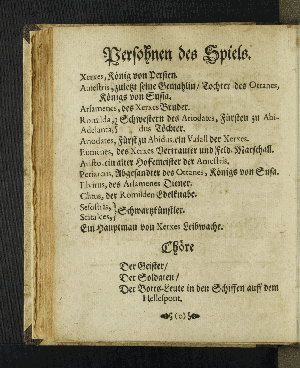 Persohnen des Spiels.
Xerxes, König von Persien.
Amestris, zuletzt seine Gemahlin / Tochter des Ottanes,
Königs von Susia.
Arsamenes, des Xerxes Bruder.
Romilda, Schwestern des Ariodates, Fürsten zu Abi-
Adelanta, dus Töchter.
Ariodates, Fürst zu Abidus, ein Vasall der Xerxes.
Eumenes, des Xerxes Vertrauter und Feld-Marschall.
Aristo, ein alter Hofemeister der Amestris.
Periarcus, Abgesandter des Ottanes, Königs von Susa.
Elvirus, des Arsamenes Diener.
Clitus, der Romilden Edelknabe.
Sesostris,
Scitalces, Schwartzkünstler.
Ein Hauptman von Xerxes Leibwache.
Chöre
Der Geister /
Der Soldaten /
Der Boots-Leute in den Schiffen auff dem
Hellespont.